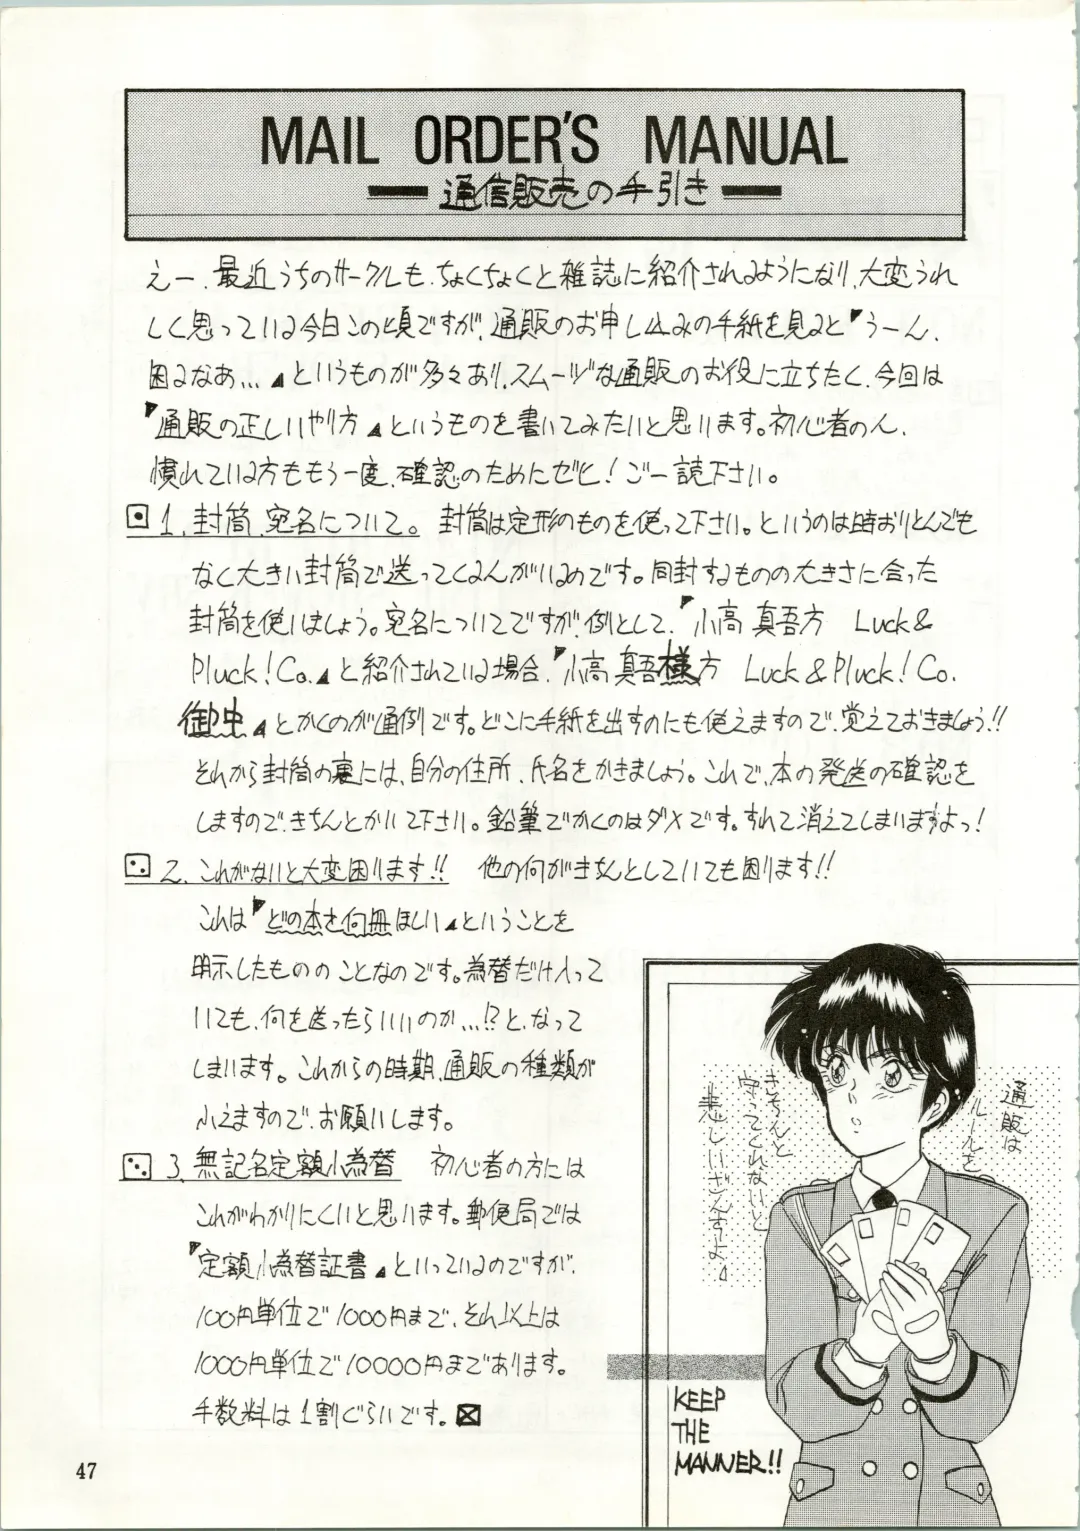 MAIL ORDER'S MANUAL
通信販売の手引き
えー、最近うちのサークルも、ちょくちょくと雑誌に紹介されるようになり、大変うれ
しく思っている今日この頃ですが、通販のお申し込みの手紙を見ると『うーん、
困るなあ…』というものが多々あり、スムーズな通販のお役に立ちたく、今回は
『通販の正しいやり方』というものを書いてみたいと思います。初心者の人、
慣れている方ももう一度、確認のためにゼヒ!ご一読下さい。
1. 封筒、宛名について。 封筒は定形のものを使って下さい。というのは時おりとんでも
なく大きい封筒で送ってくる人がいるのです。同封するものの大きさに合った
封筒を使いましょう。宛名についてですが、例として、『小高 真吾方 Luck&
Pluck!Co.』と紹介されている場合、『小高 真吾様方 Luck&Pluck!Co.
御中』とかくのが通例です。どこに手紙を出すのにも使えますので、覚えておきましょう!!
それから封筒の裏には、自分の住所、氏名をかきましょう。これで、本の発送の確認を
しますので、きちんとかいて下さい。鉛筆でかくのはダメです。すれて消えてしまいますよっ!
2. これがないと大変困ります!! 他の何がきちんとしていても困ります!!
これは『どの本を何冊ほしい』ということを
明示したもののことなのです。為替だけ入って
いても、何を送ったらいいのか…!?と、なって
しまいます。これからの時期、通販の種類が
ふえますので、お願いします。
3. 無記名定額小為替 初心者の方には
これがわかりにくいと思います。郵便局では
『定額小為替証書』といっているのですが、
100円単位で1000円まで、それ以上は
1000円単位で10000円まであります。
手数料は1割ぐらいです。
通販は
ルールを
きちんと
守ってくれないと
悲しいざんすよ」
KEEP
THE
MANNER!!
47